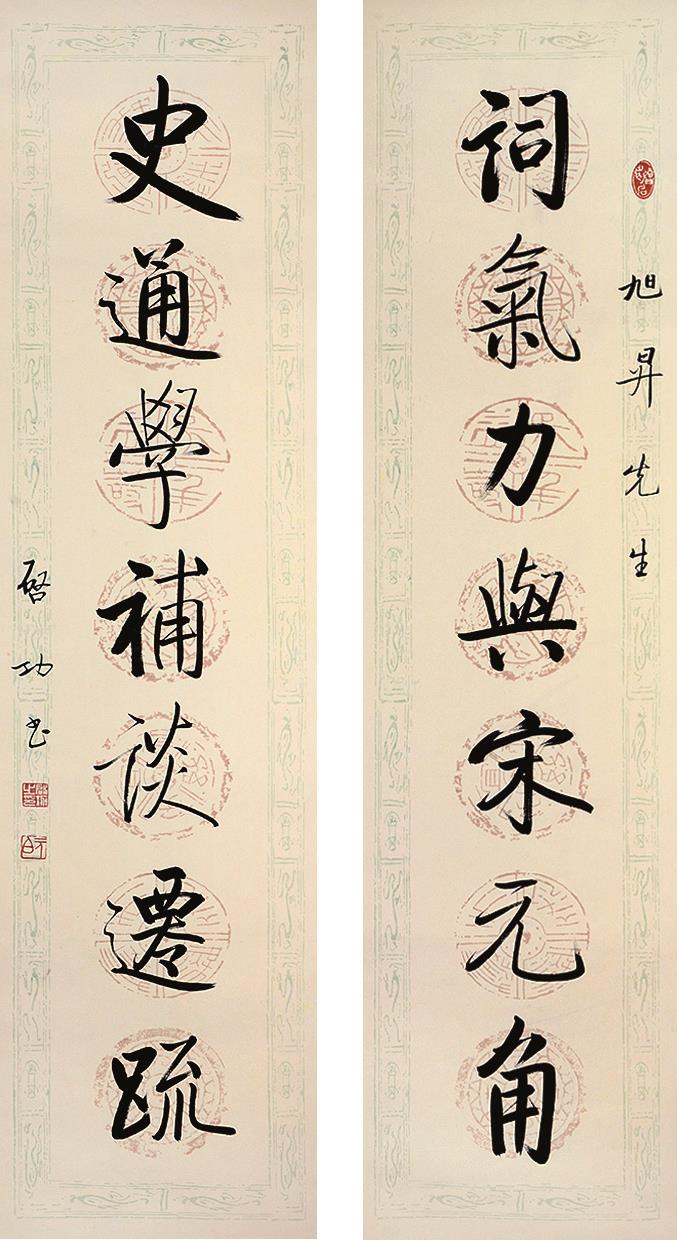 旭昇先生
詞氣力與宋元角
史通學補談遷疏
啓功書
元白